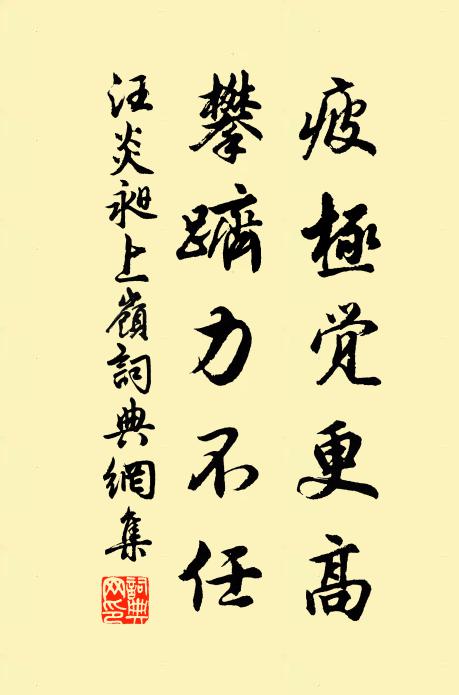 疲極覚更高
攀躋力不任
汪炎昶上嶺詞典網集
詞典网印